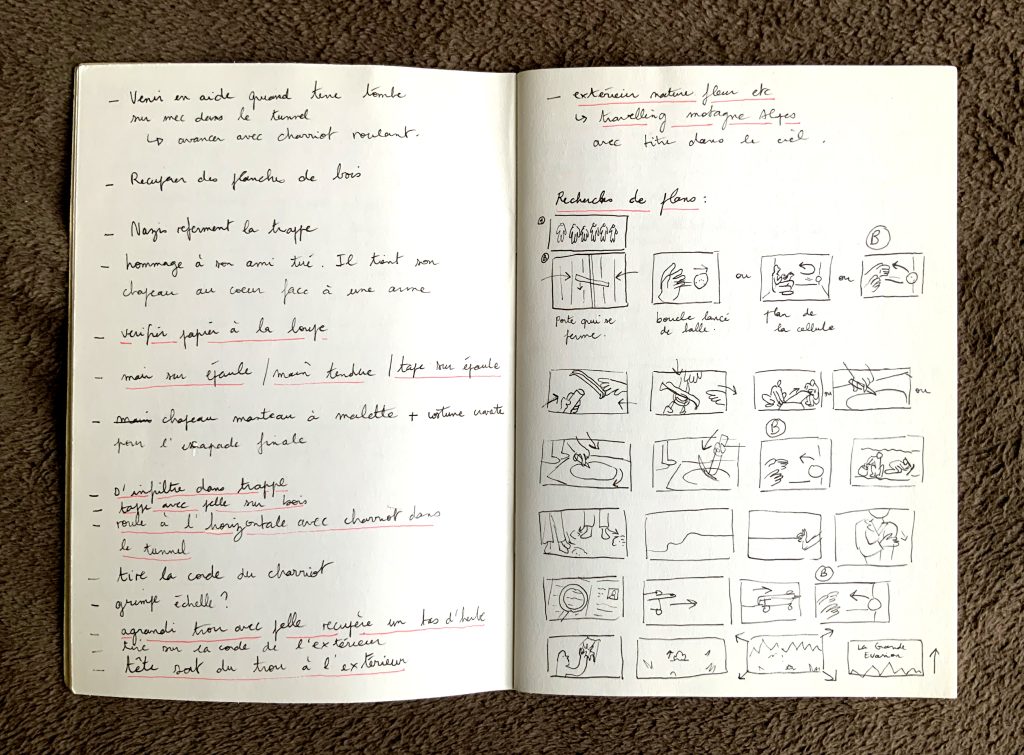 – Venir en aide quand terre tombe
sur mec dans le tunnel
↳ avancer avec charriot roulant.
– Recuperer des planches de bois
– Nazis referment la trappe
– hommage à son ami tué. Il tient son
chapeau au coeur face à une arme
– verifier papier à la loupe
– main sur épaule / main tendue / tape sur épaule
– chapeau manteau à malette + costume cravate
pour l'escapade finale
– s'infiltre dans trappe
– tappe avec pelle sur bois
– roule à l'horizontale avec charriot dans
le tunnel
– tire la corde du charriot
– grimpe échelle ?
– agrandi trou avec pelle recupère un tas d'herbe
– tire sur la corde de l'extérieur
– tête sort du trou à l'extérieur
– extérieur nature fleur etc
↳ travelling motagne Alpes
avec titre dans le ciel.
Recherches de plans :
B
ou
ou
Porte qui se
ferme.
boucle lancé
de balle.
plan de
la cellule
ou
ou
B
B
La Grande
Evasion